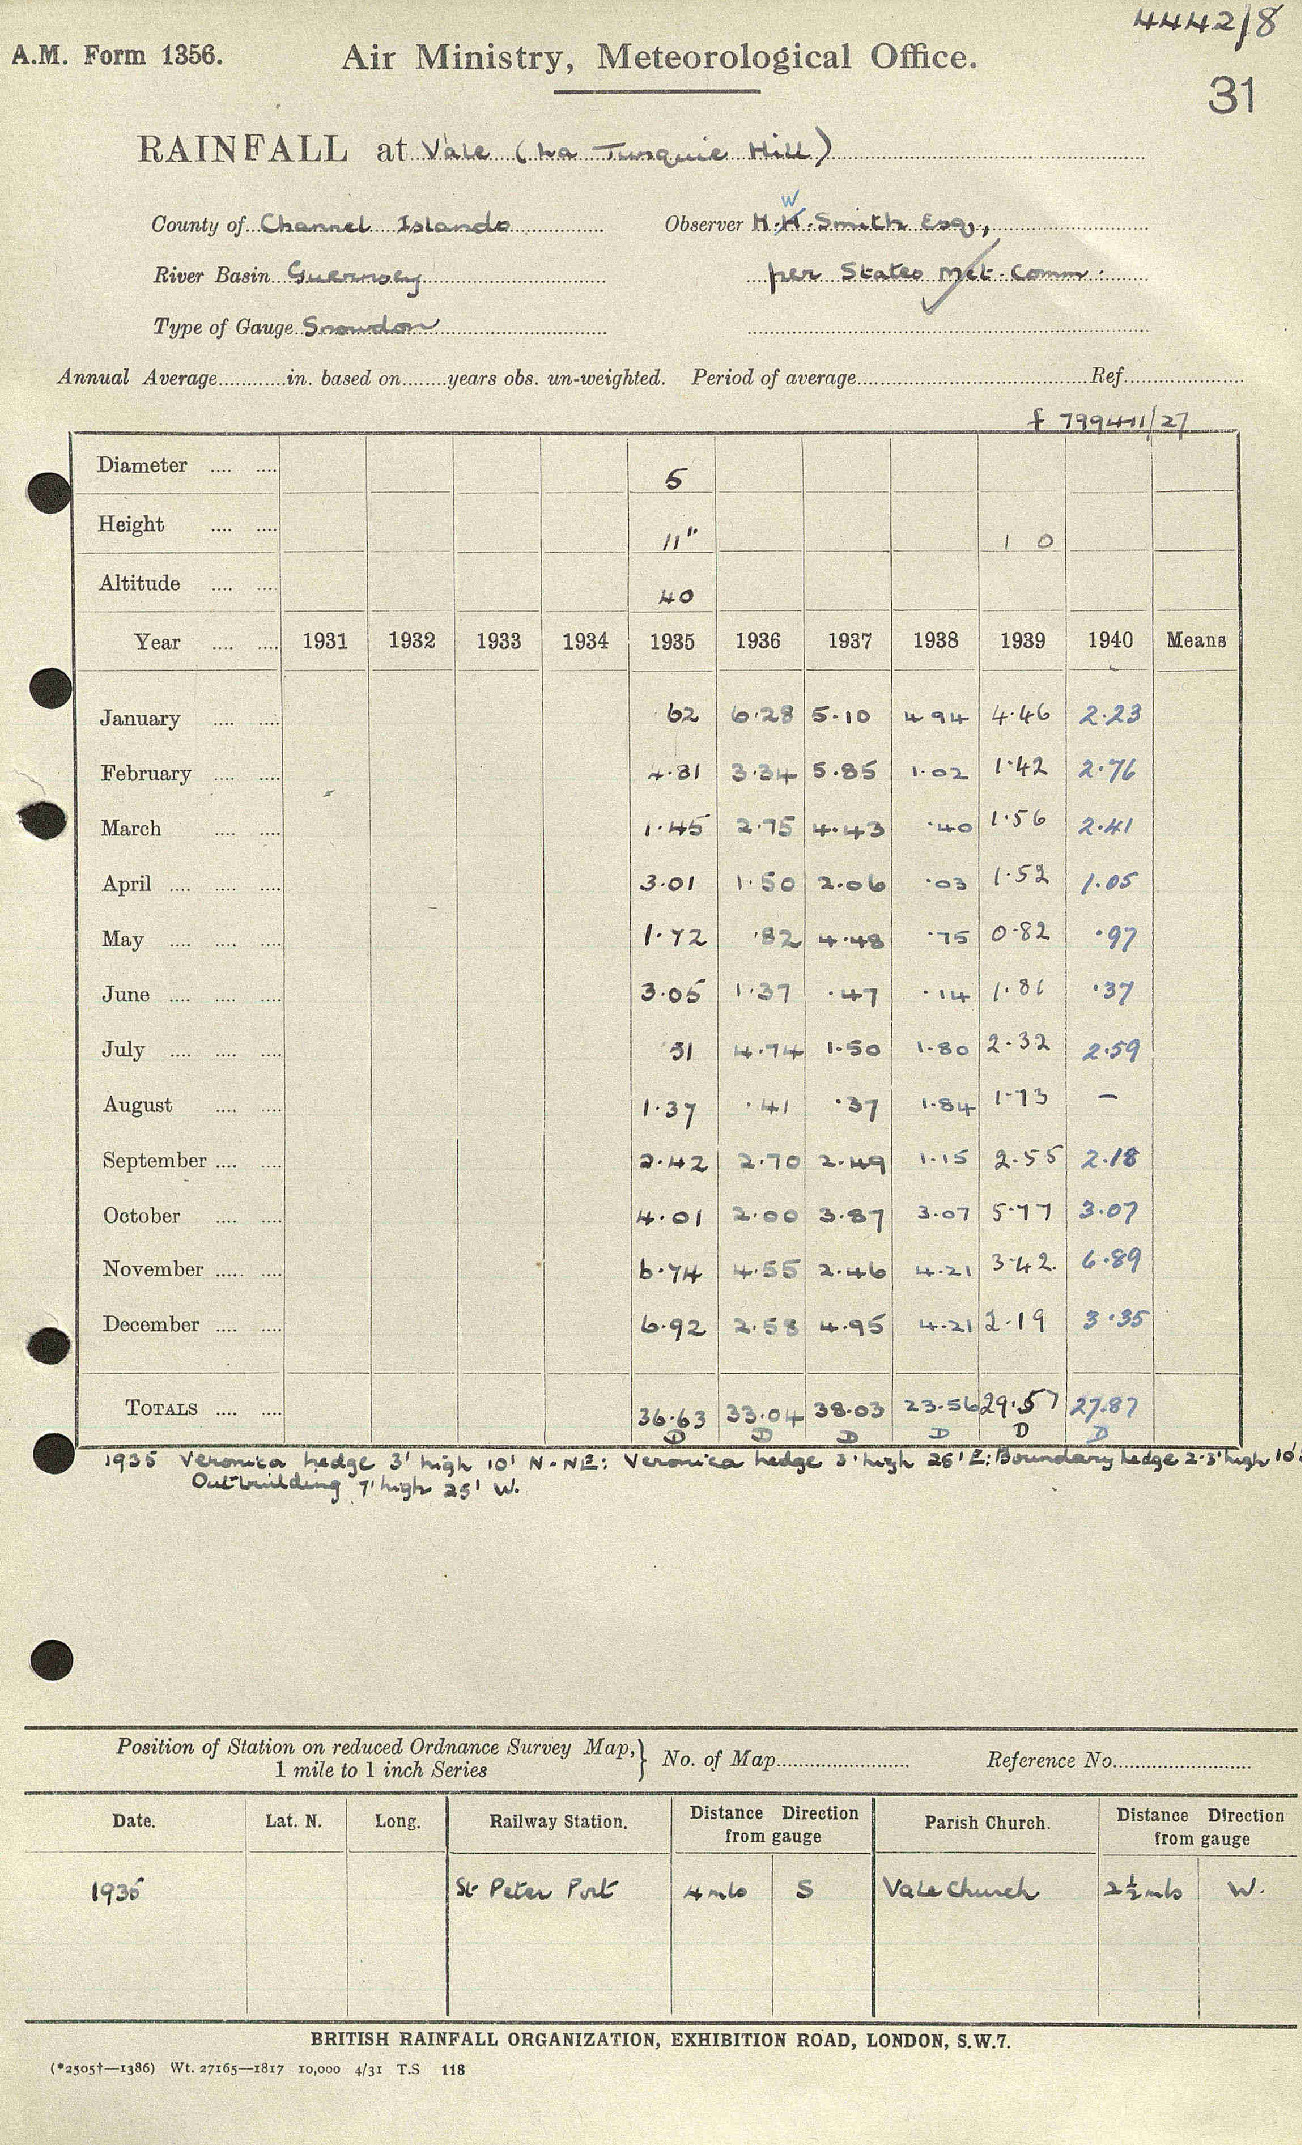 4442/8
A.M. Form 1356. Air Ministry, Meteorological Office.
31
RAINFALL at Vale (La Turquie Hill)
County of Channel Islands Observer H.W. Smith Esq.,
River Basin Guernsey per States Met. Comm.
Type of Gauge Snowdon
Annual Average............in. based on........years obs. un-weighted. Period of average........................Ref........................
Diameter .... .... 5
Height .... .... 11" 1 0
Altitude .... .... 40
Year .... .... 1931 1932 1933 1934 1935 1936 1937 1938 1939 1940 Means
January .... .... ·62 6·28 5·10 4·94 4·46 2·23
February .... .... 4·81 3·34 5·85 1·02 1·42 2·76
March .... .... 1·45 2·75 4·43 ·40 1·56 2·41
April .... .... .... 3·01 1·50 2·06 ·03 1·52 1·05
May .... .... .... 1·72 ·82 4·48 ·75 0·82 ·97
June .... .... .... 3·05 1·37 ·47 ·14 1·81 ·37
July .... .... .... ·51 4·74 1·50 1·80 2·32 2·59
August .... .... 1·37 ·41 ·37 1·84 1·73 –
September .... .... 2·42 2·70 2·49 1·15 2·55 2·18
October .... .... 4·01 2·00 3·87 3·07 5·77 3·07
November .... .... 6·74 4·55 2·46 4·21 3·42 6·89
December .... .... 6·92 2·58 4·95 4·21 2·19 3·35
TOTALS .... .... 36·63 33·04 38·03 23·56 29·57 27·87
D D D D D D
1935 Veronica hedge 3' high 10' N-NE: Veronica hedge 3' high 25' E: Boundary hedge 2-3' high 10'
Outbuilding 7' high 25' W.
Position of Station on reduced Ordnance Survey Map, } No. of Map........................ Reference No........................
1 mile to 1 inch Series
Date. Lat. N. Long. Railway Station. Distance Direction from gauge Parish Church. Distance Direction from gauge
1935 St Peter Port 4 mls S Vale Church 2½ mls W.
BRITISH RAINFALL ORGANIZATION, EXHIBITION ROAD, LONDON, S.W.7.
(*2505†—1386) Wt. 27165—1817 10,000 4/31 T.S 118